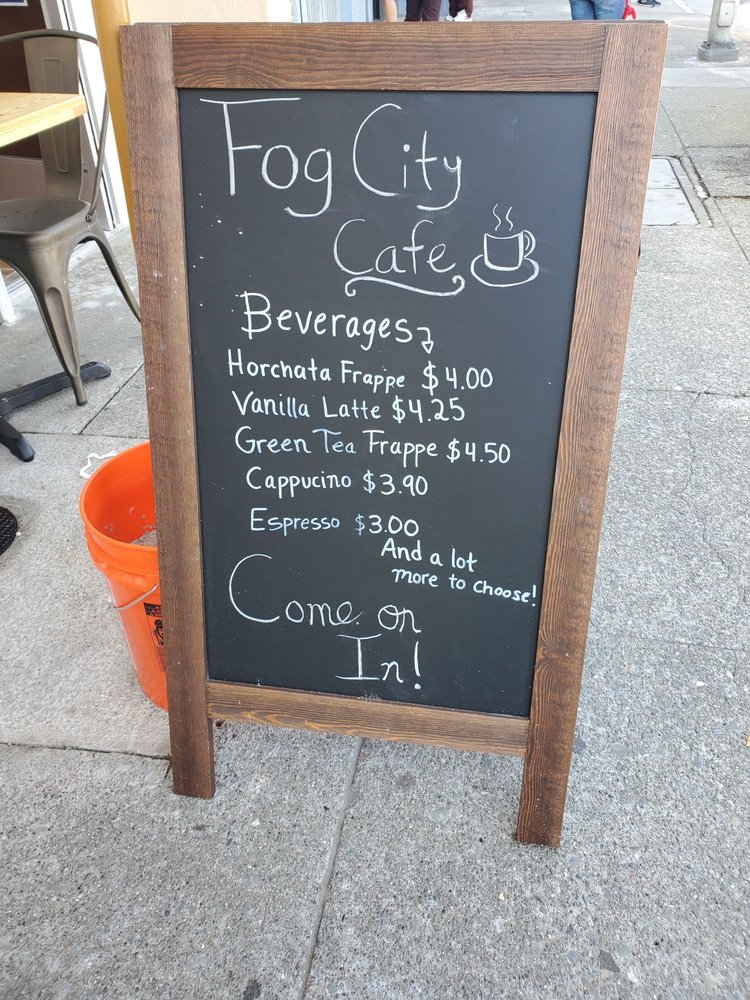 Fog City
Cafe
Beverages
Horchata Frappe $4.00
Vanilla Latte $4.25
Green Tea Frappe $4.50
Cappucino $3.90
Espresso $3.00
And a lot
more to choose!
Come on
In!